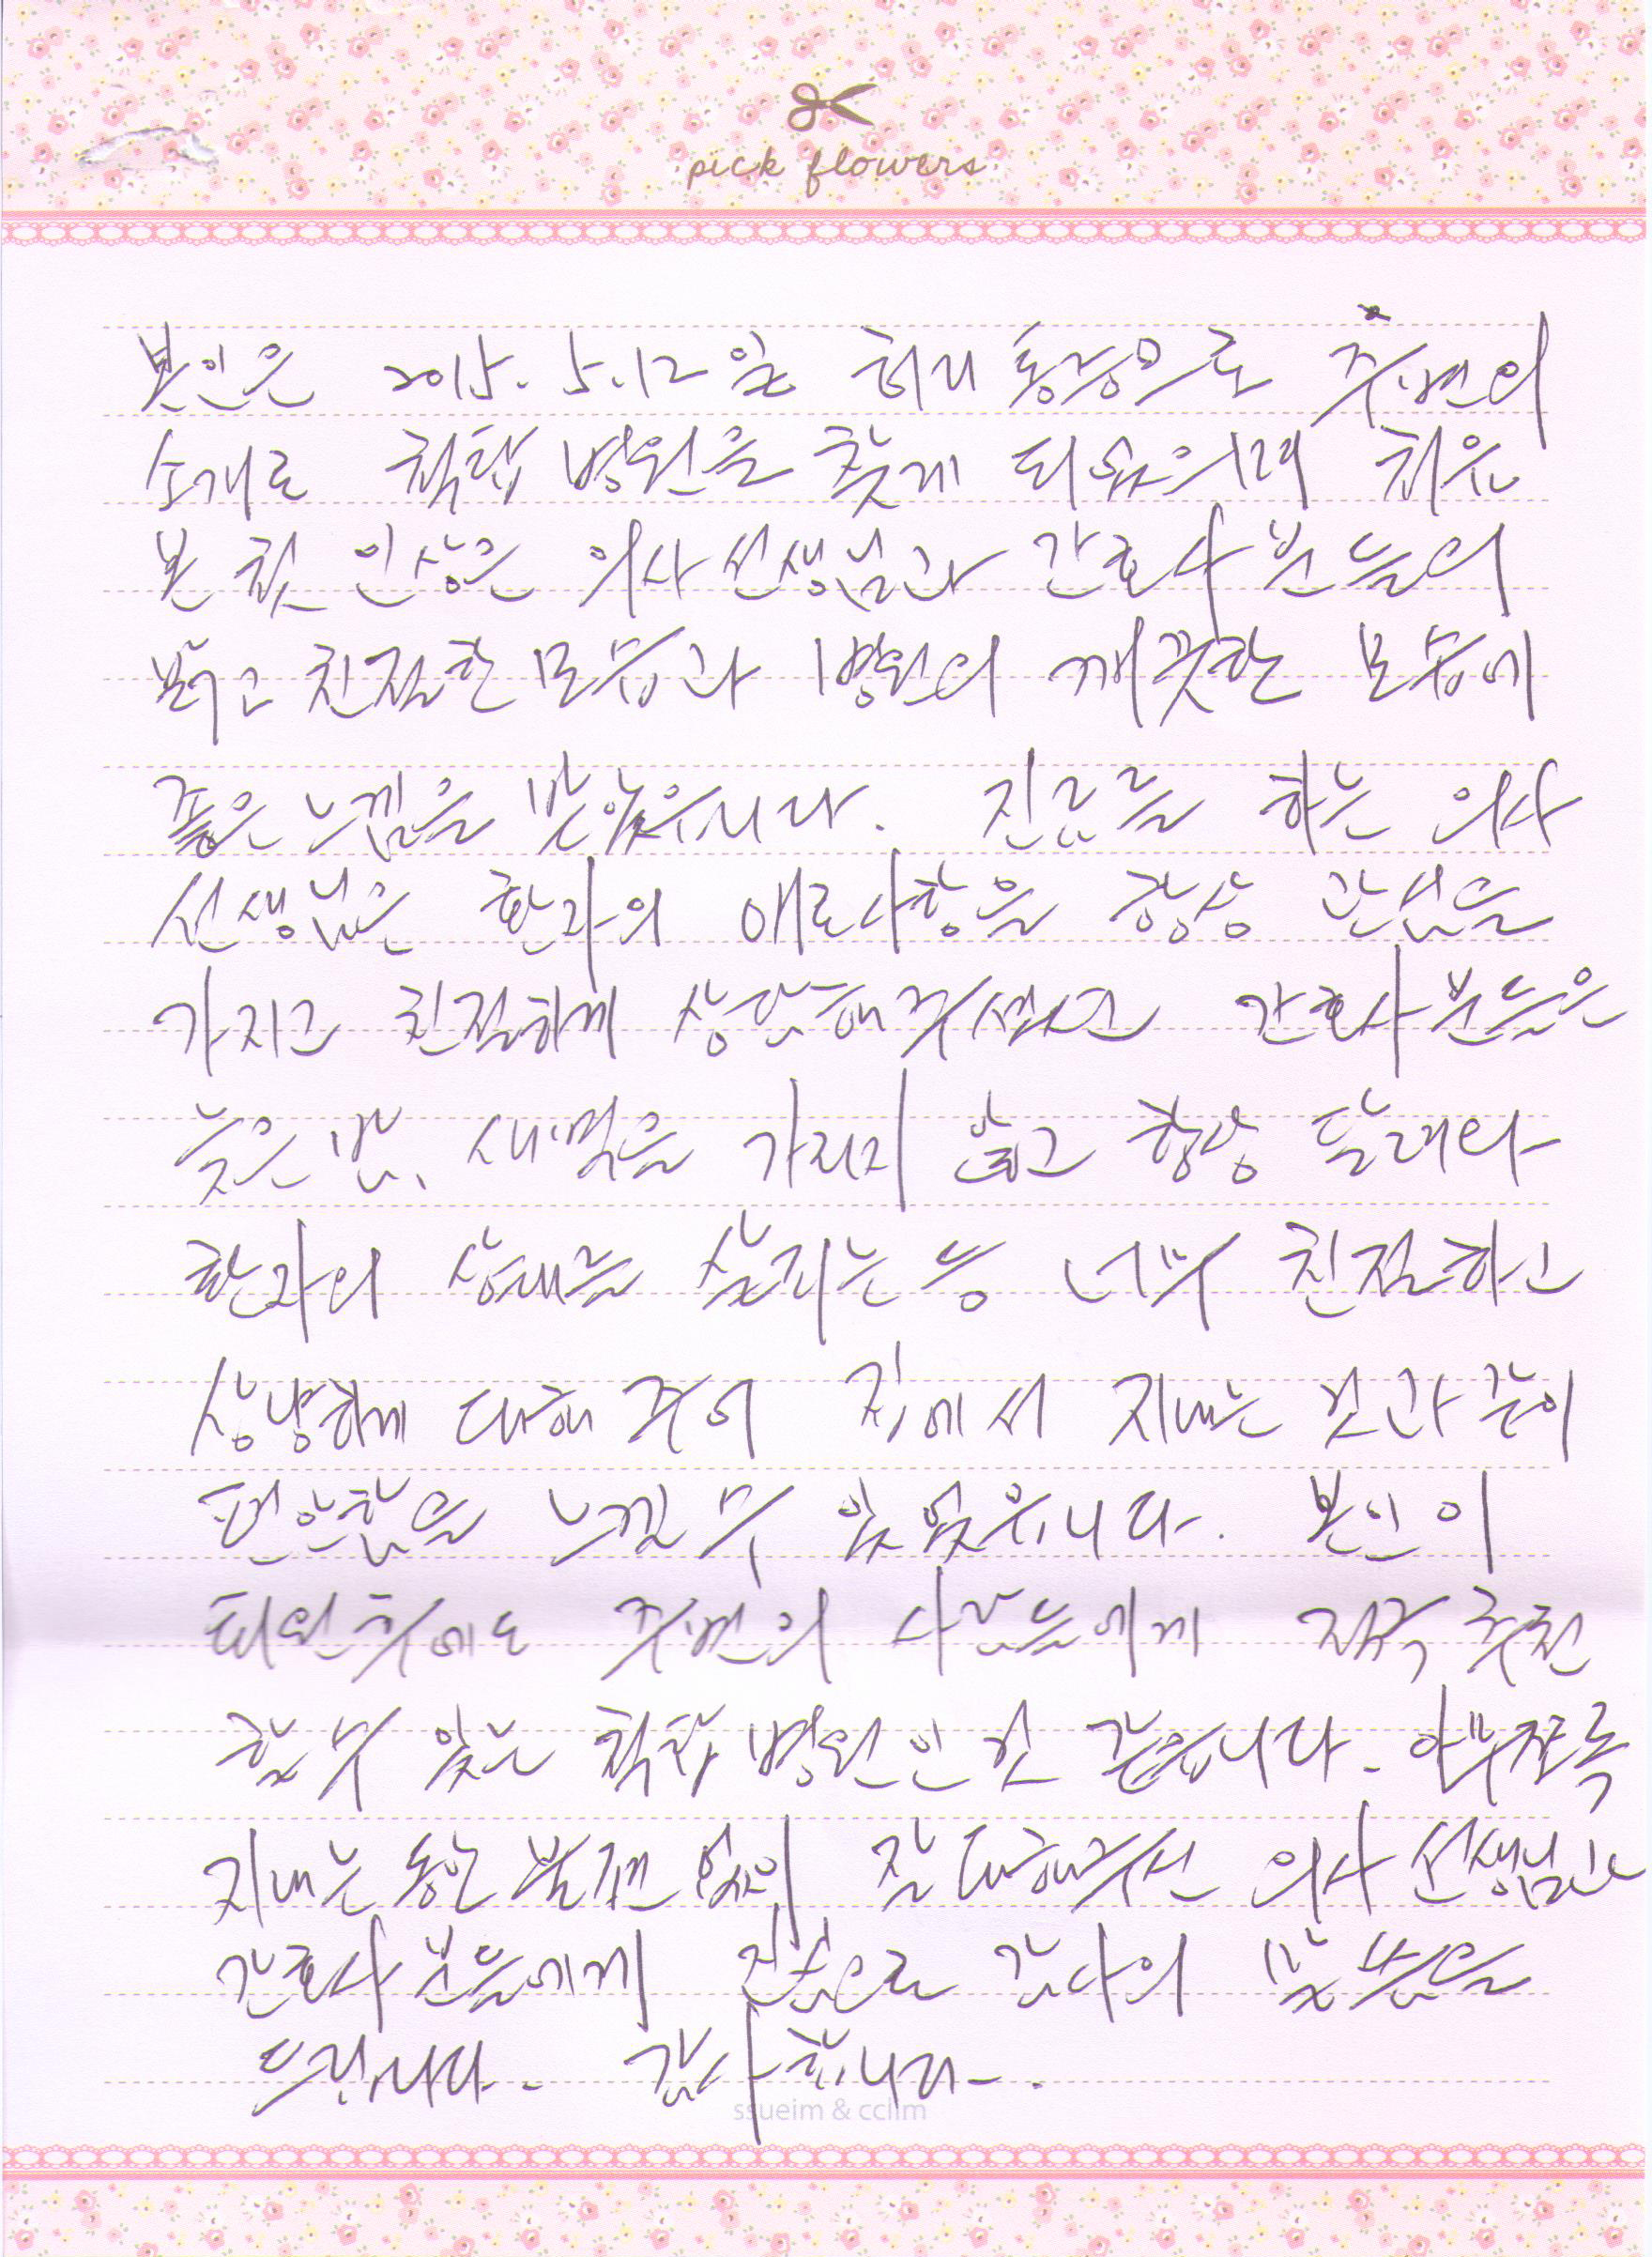 pick flowers
본인은 2015. 5.12일 허리통증으로 주변의
소개로 척탑병원을 찾게 되었으며 처음
본 첫 인상은 의사선생님과 간호사분들의
밝고 친절한 모습과 병원의 깨끗한 모습에
좋은 느낌을 받았습니다. 진료를 하는 의사
선생님은 환자의 애로사항을 항상 관심을
가지고 친절하게 상담해주셨고 간호사분들은
늦은 밤, 새벽을 가리지 않고 항상 달려와
환자의 상태를 살피는 등 너무 친절하고
상냥하게 대해주어 집에서 지내는 것과 같이
편안함을 느낄 수 있었습니다. 본인이
퇴원후에도 주변의 사람들에게 적극 추천
할 수 있는 척탑병원인것 같습니다. 아무쪼록
지내는 동안 불편 없이 잘 대해주신 의사선생님과
간호사분들에게 진심으로 감사의 말씀을
드립니다. 감사합니다.
ssueim & cclim